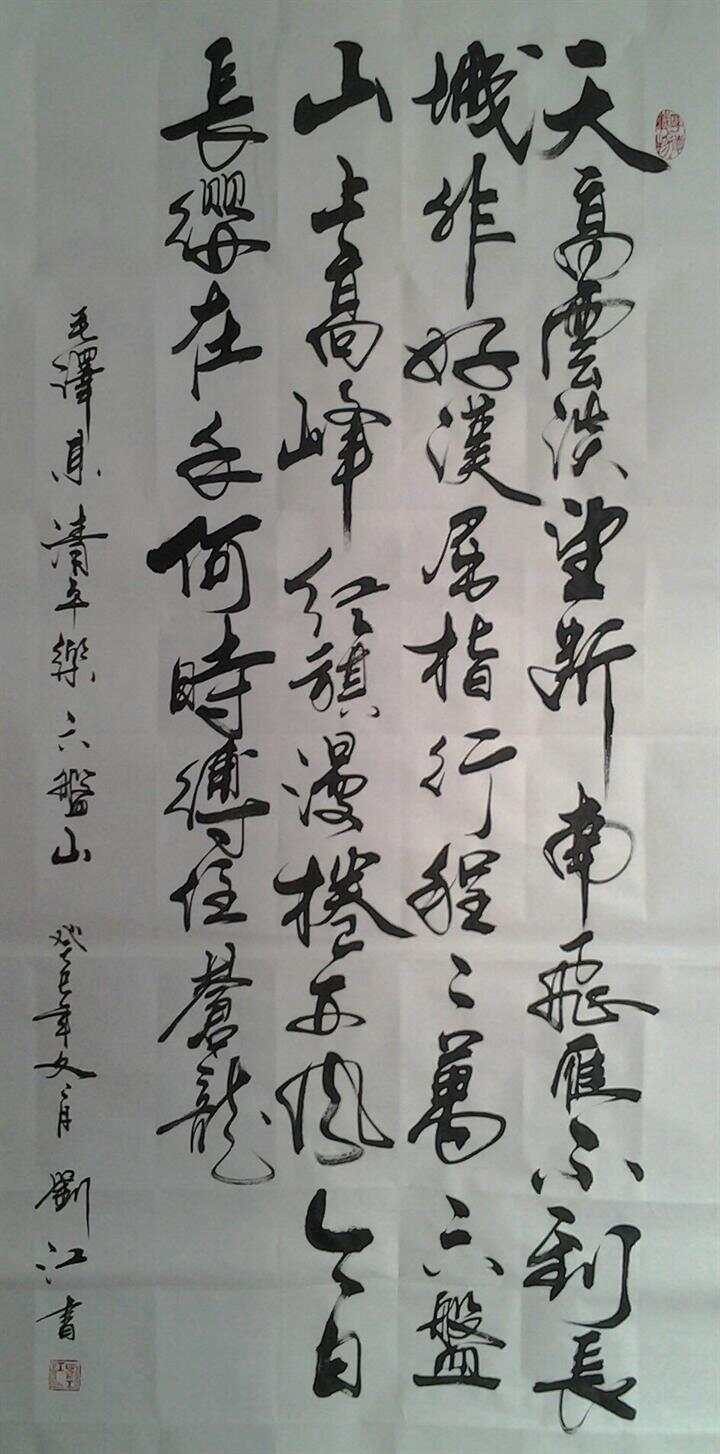 天高雲淡望斷南飛雁不到長
城非好漢屈指行程二萬六盤
山上高峰紅旗漫捲西風今日
長纓在手何時縛住蒼龍
毛澤東清平樂六盤山 癸巳年冬月 劉江書